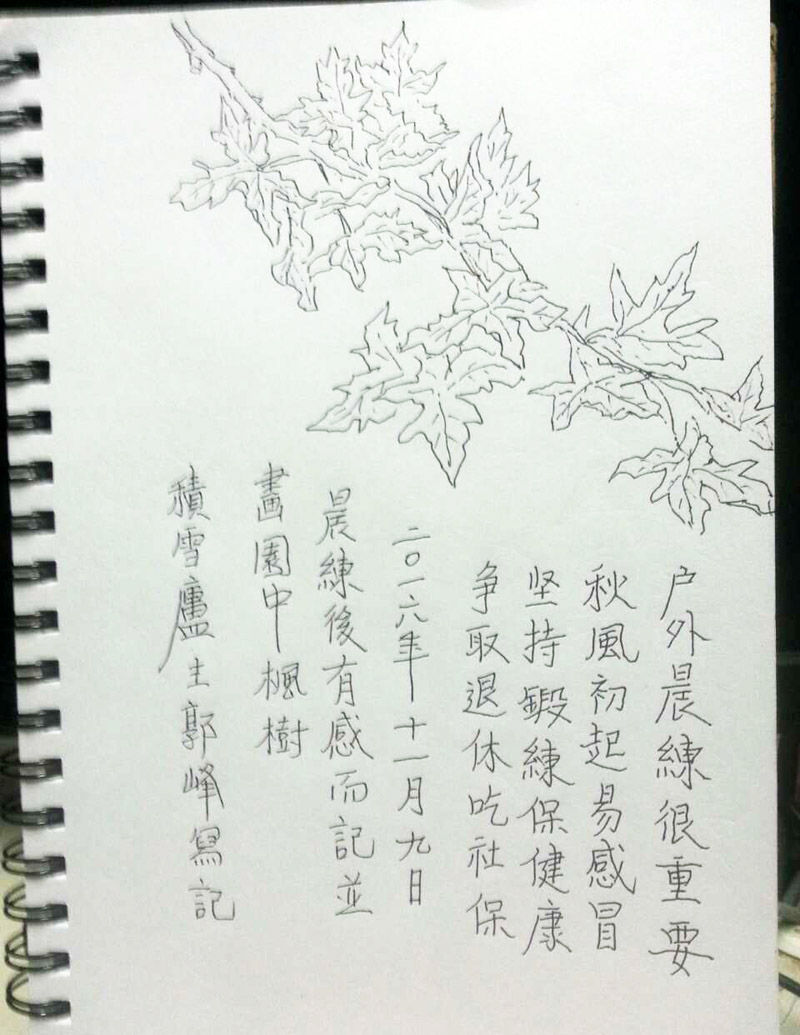 户外晨練很重要
秋風初起易感冒
坚持鍛練保健康
争取退休吃社保
二〇一六年十一月九日
晨練後有感而記並
畫園中楓樹
積雪廬主郭峰寫記